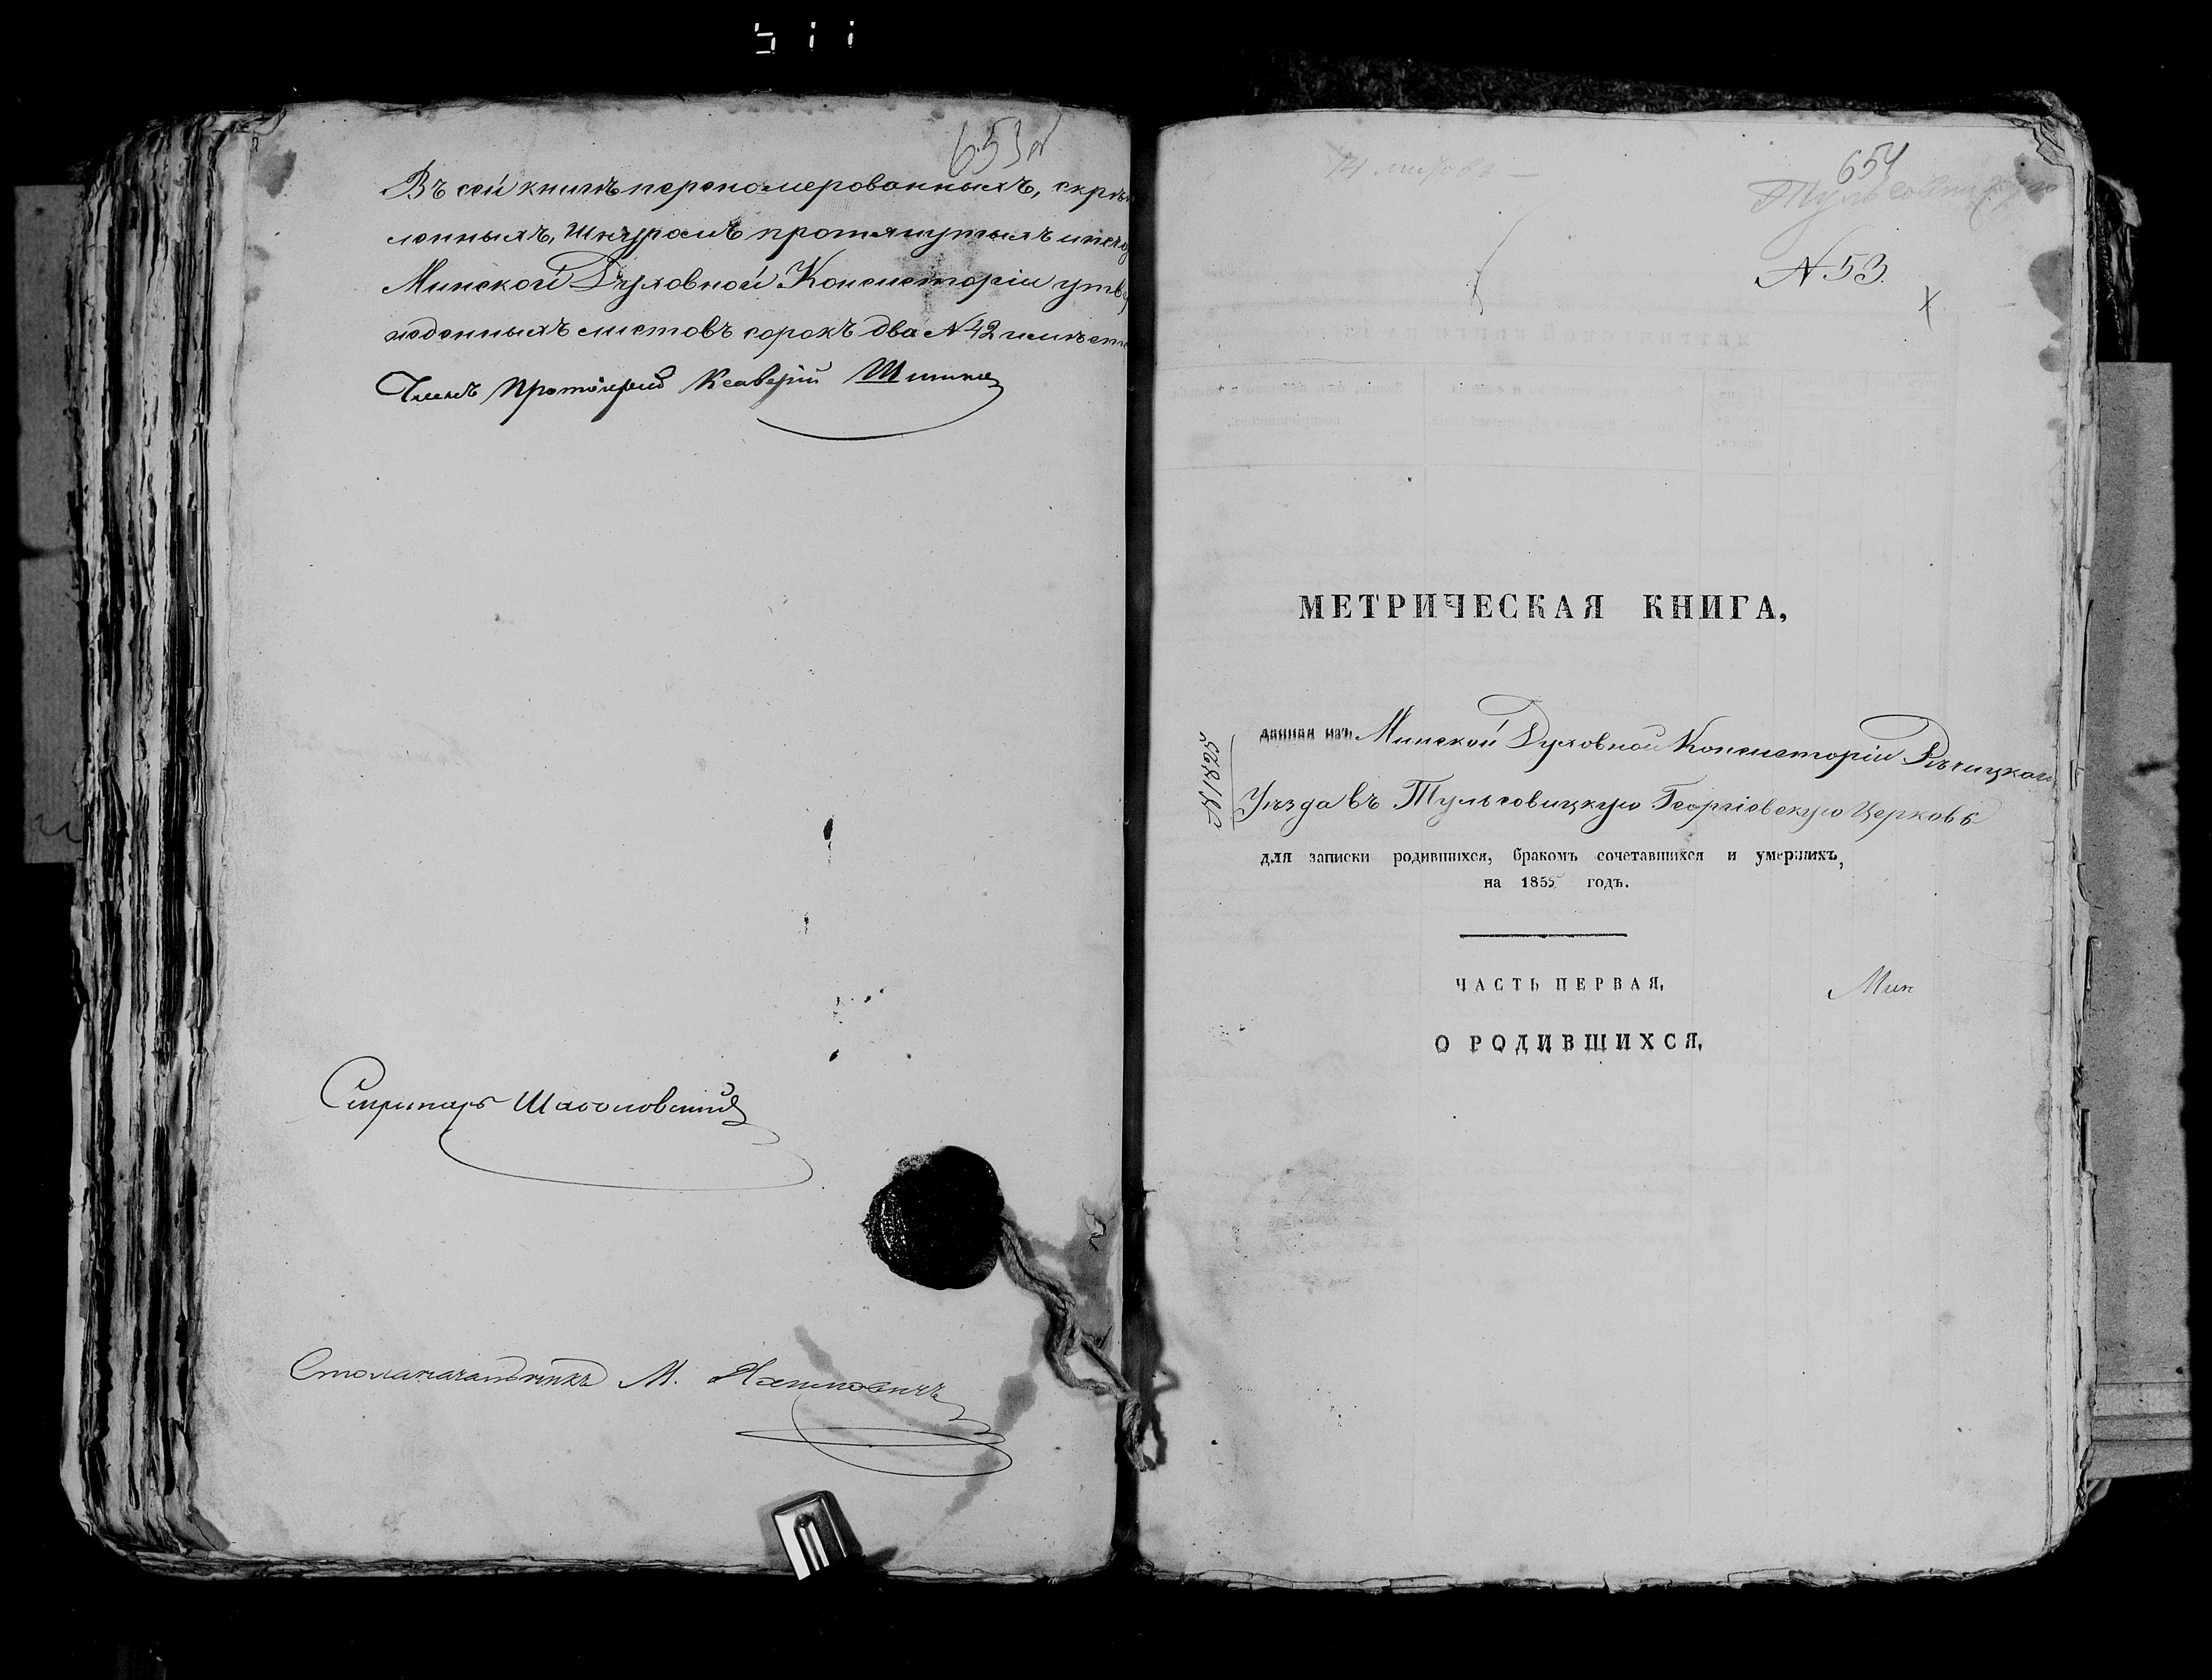 653об
Въ сей книгѣ переномерованныхъ, скрѣп
ленныхъ, Шнуромъ протянутыхъ и печа
Минской Духовной Консисторіи утвер
жденныхъ листовъ сорокъ два №42 имѣет
Членъ Протоіерей Ксаверій
Секретарь
Столоначальникъ М.
654
№ 53.
МЕТРИЧЕСКАЯ КНИГА,
№1825
данная изъ Минской Духовной Консисторіи Рѣчицкаго
Уѣзда въ Тульговицкую Георгіевскую Церковь
для записки родившихся, бракомъ сочетавшихся и умершихъ,
на 1855 годъ.
ЧАСТЬ ПЕРВАЯ,
Мин
О РОДИВШИХСЯ,